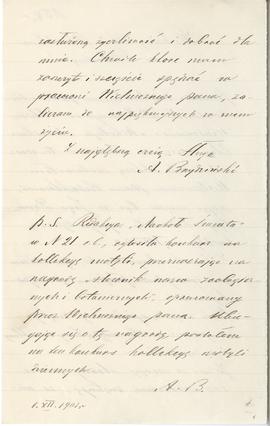 życzliwość i dobroć dla
mnie. Chwile które mam
zaszczyt i szczęście spędzać w
pracowni Wielmożnego pana, za-
liczam do najpiękniejszych w mem
życiu.
Z najgłębszą czcią Sługa
A.
P. S. Redakcya, Naokoło świata
w N 21 o b., ogłosiła konkurs na
kollekcyę motyli, przeznaczając na
nagrodę słownik nazw zoologicz-
nych i botanicznych, opracowany
przez Wielmożnego pana. Ubie-
gając się o tę nagrodę posłałem
na ten konkurs kollekcyę motyli
A. B.
1. XII.